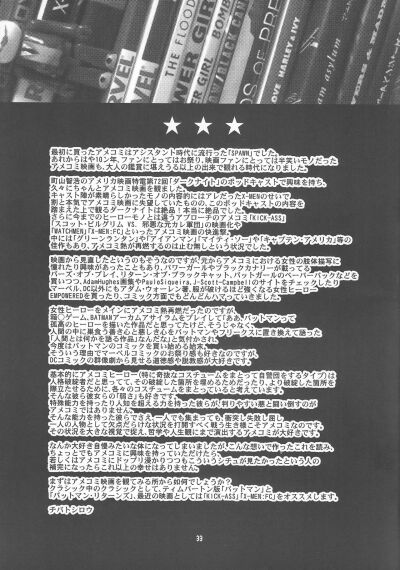 MARVEL
THE FLOOD
POWER GIRL
POWER GIRL BOMB
BLACK CAN
DS OF PREY
LOVE HARLEY+IVY
arkham asylum
★ ★ ★
最初に買ったアメコミはアシスタント時代に流行った「SPAWN」でした。
あれからはや10年、ファンにとってはお祭り、映画ファンにとっては半笑いモノだった
アメコミ映画も、大人の鑑賞に堪えうる以上の出来で観れる時代になりました。
町山智浩のアメリカ映画特電第72回「ダークナイト」のポッドキャストで興味を持ち、
久々にちゃんとアメコミ映画を観ました。
キャスト陣が素晴らしかったモノの内容的にはアレだったX-MENのせいで
割と本気でアメコミ映画に失望していたものの、このポッドキャストの内容を
踏まえた上で観るダークナイトは絶品！本当に絶品でした。
さらに今までのヒーローモノとは違うアプローチのアメコミ「KICK-ASS」
「スコット・ピルグリム VS. 邪悪な元カレ軍団」の映画化や
「WATCHMEN」「X-MEN:FC」といったアメコミ映画の快進撃、
中には「グリーンランタン」や「アイアンマン」「マイティ・ソー」や「キャプテン・アメリカ」等の
佳作もあり、アメコミ熱が再燃てるのは止む無しという状況でした。
映画から見直したというのもそうなのですが、元からアメコミにおける女性の肢体描写に
憧れたり興味があったこともあり、パワーガールやブラックカナリーが載ってる
バーズ・オブ・プレイ、リターン・オブ・ブラックキャット、バットガールのペーパーバックなどを
買いつつ、AdamHughes画集やPauloSiqueira、J-Scott-Campbellのサイトをチェックしたり
マーベル、DC以外にもアダム・ウォーレン著、服が破けるほど強くなる女性ヒーロー
EMPOWEREDを買ったり、コミック方面でもどんどんハマっていきます。
女性ヒーローをメインにアメコミ熱再燃だったのですが、
箱○ゲーム、BATMANアーカムアサイラムをプレイして「ああ、バットマンって
孤高のヒーローを描いた作品だと思ってたけど、そうじゃなく、
人間の内に巣食う善き心と悪しき心をバットマンやフリークスに置き換えて語った
「人間とは何かを語る作品」なんだな」と気付かされ、
今度はバットマンのコミックを買い始める始末。
そういう理由でマーベルコミックのお祭り感も好きなのですが、
DCコミックの群像劇から見せる道徳感や説教感が大好きです。
基本的にアメコミヒーロー(特に奇抜なコスチュームをまとって自警団をするタイプ)は
人格破綻者だと思ってて、その破綻した箇所を埋めるためだったり、より破綻した箇所を
際立たせるために、各々のコスチュームをまとっていると考えています。
そんな彼ら彼女らの「弱さ」も好きです。
特殊能力を持ったり人知を超える力を持った彼らが、判りやすい悪と闘い倒すのが
アメコミではありません。
そんな能力を持った彼らでさえ、一人でも集まっても、衝突し失敗し困し、
一人の人物として欠点だらけな状況を打開すべく戦う生き様こそアメコミなのです。
その状況を大きな視覚で捉え、哲学や人生観にまで演出するアメコミが大好きです。
なんか大好き自慢みたいな体になってしまいましたが、こんな想いで作ったこれを読み、
ちょっとでもアメコミに興味を持っていただけたら、
若しくはアメコミにドップリ浸かりつつもこういうシチュが見たかったという人の
補完になったらこれ以上の幸せはありません。
まずはアメコミ映画を観てみる所から如何でしょうか？
クラシック中のクラシックとして、ティムバートン版「バットマン」と
「バットマン・リターンズ」、最近の映画としては「KICK-ASS」「X-MEN:FC」をオススメします。
チバトシロウ
33